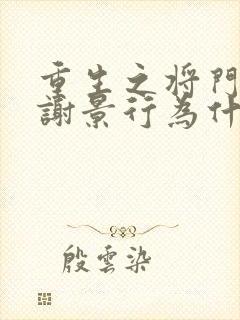 重生之将門
謝景行為什
殷雲染